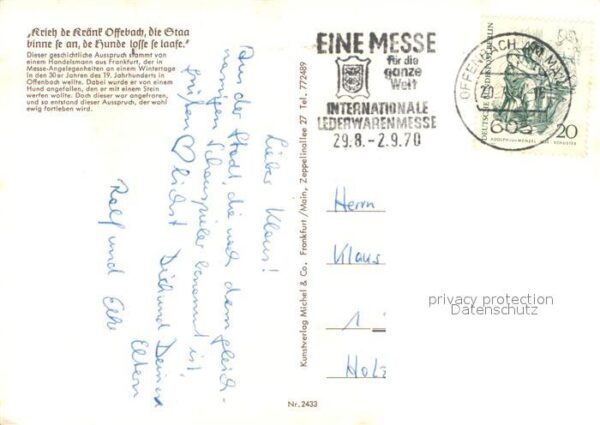 „Krieh de Kränk Offebach, die Staa
binne se an, de Hunde losse se laafe.“
Dieser geschichtliche Ausspruch stammt von
einem Handelsmann aus Frankfurt, der in
Messe-Angelegenheiten an einem Wintertage
in den 30er Jahren des 19. Jahrhunderts in
Offenbach weilte. Dabei wurde er von einem
Hund angefallen, den er mit einem Stein
werfen wollte. Doch dieser war angefroren,
und so entstand dieser Ausspruch, der wohl
ewig fortleben wird.
Lieber Klaus!
Aus der Stadt, die nach dem gleich-
namigen Schauspieler benannt ist,
grüßen herzlichst Dich und Deine
Eltern
Ralf und Elke
Kunstverlag Michel & Co. Frankfurt/Main, Zeppelinallee 27 Tel. 772489
Nr. 2433
EINE MESSE
für die
ganze
Welt
INTERNATIONALE
LEDERWARENMESSE
29.8.–2.9.70
OFFENBACH AM MAIN
605
DEUTSCHE BUNDESPOST BERLIN
20
Herrn
Klaus
1
Holz
privacy protection
Datenschutz